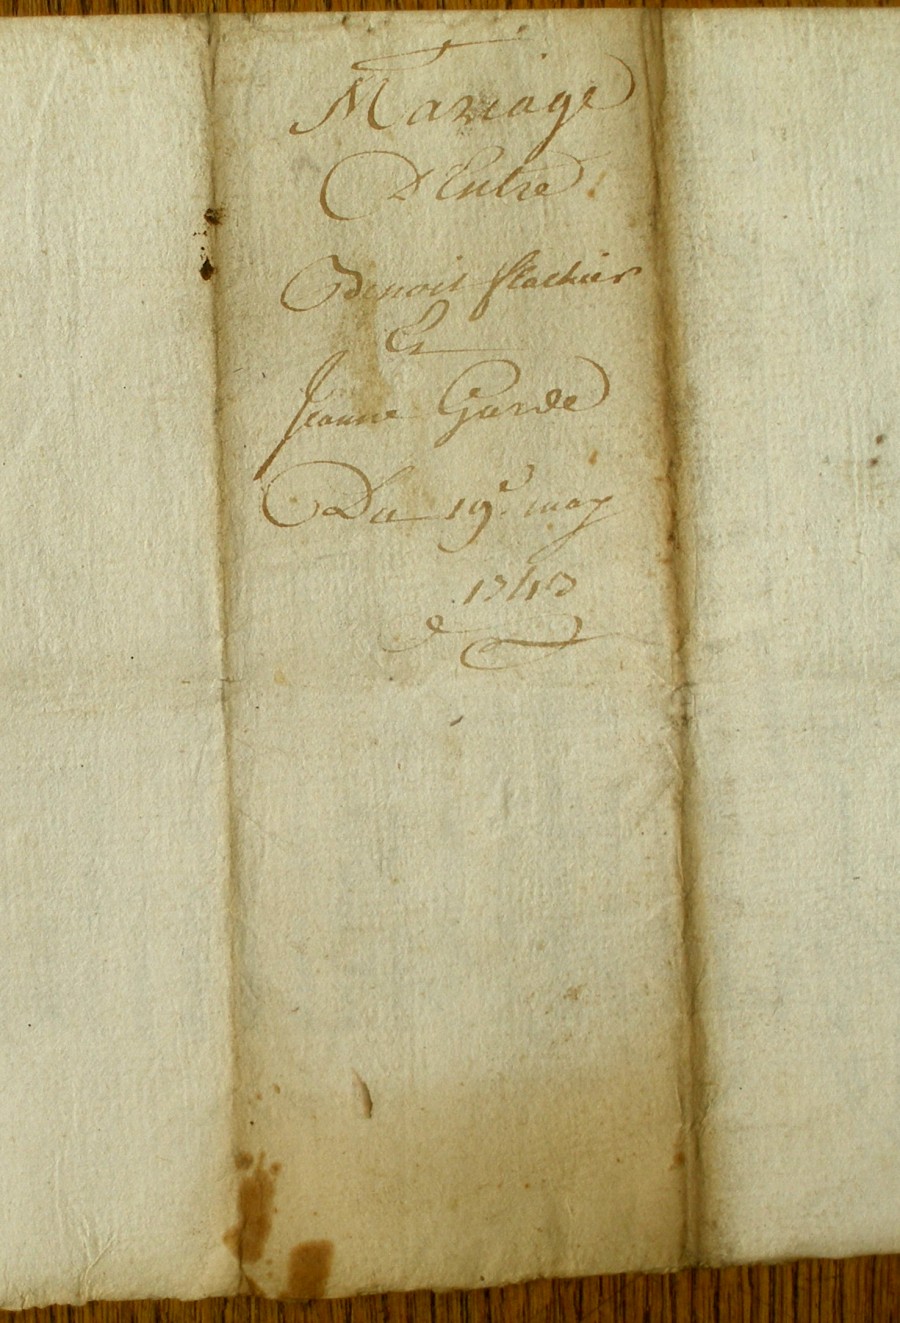 Mariage
D'Entre
Benoit
Et
Jeanne Garde
Du 19e. may
1743